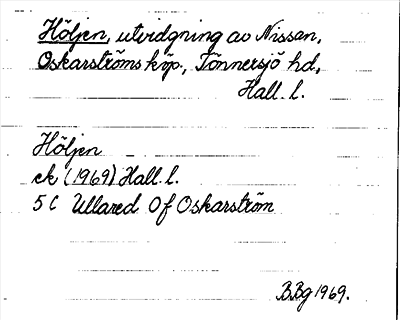 Höljen, utvidgning av Nissan,
Oskarströms köp., Tönnersjö hd,
Hall. l.
Höljen
ek (1969) Hall. l.
5 C Ullared Of Oskarström
B.Bg 1969.